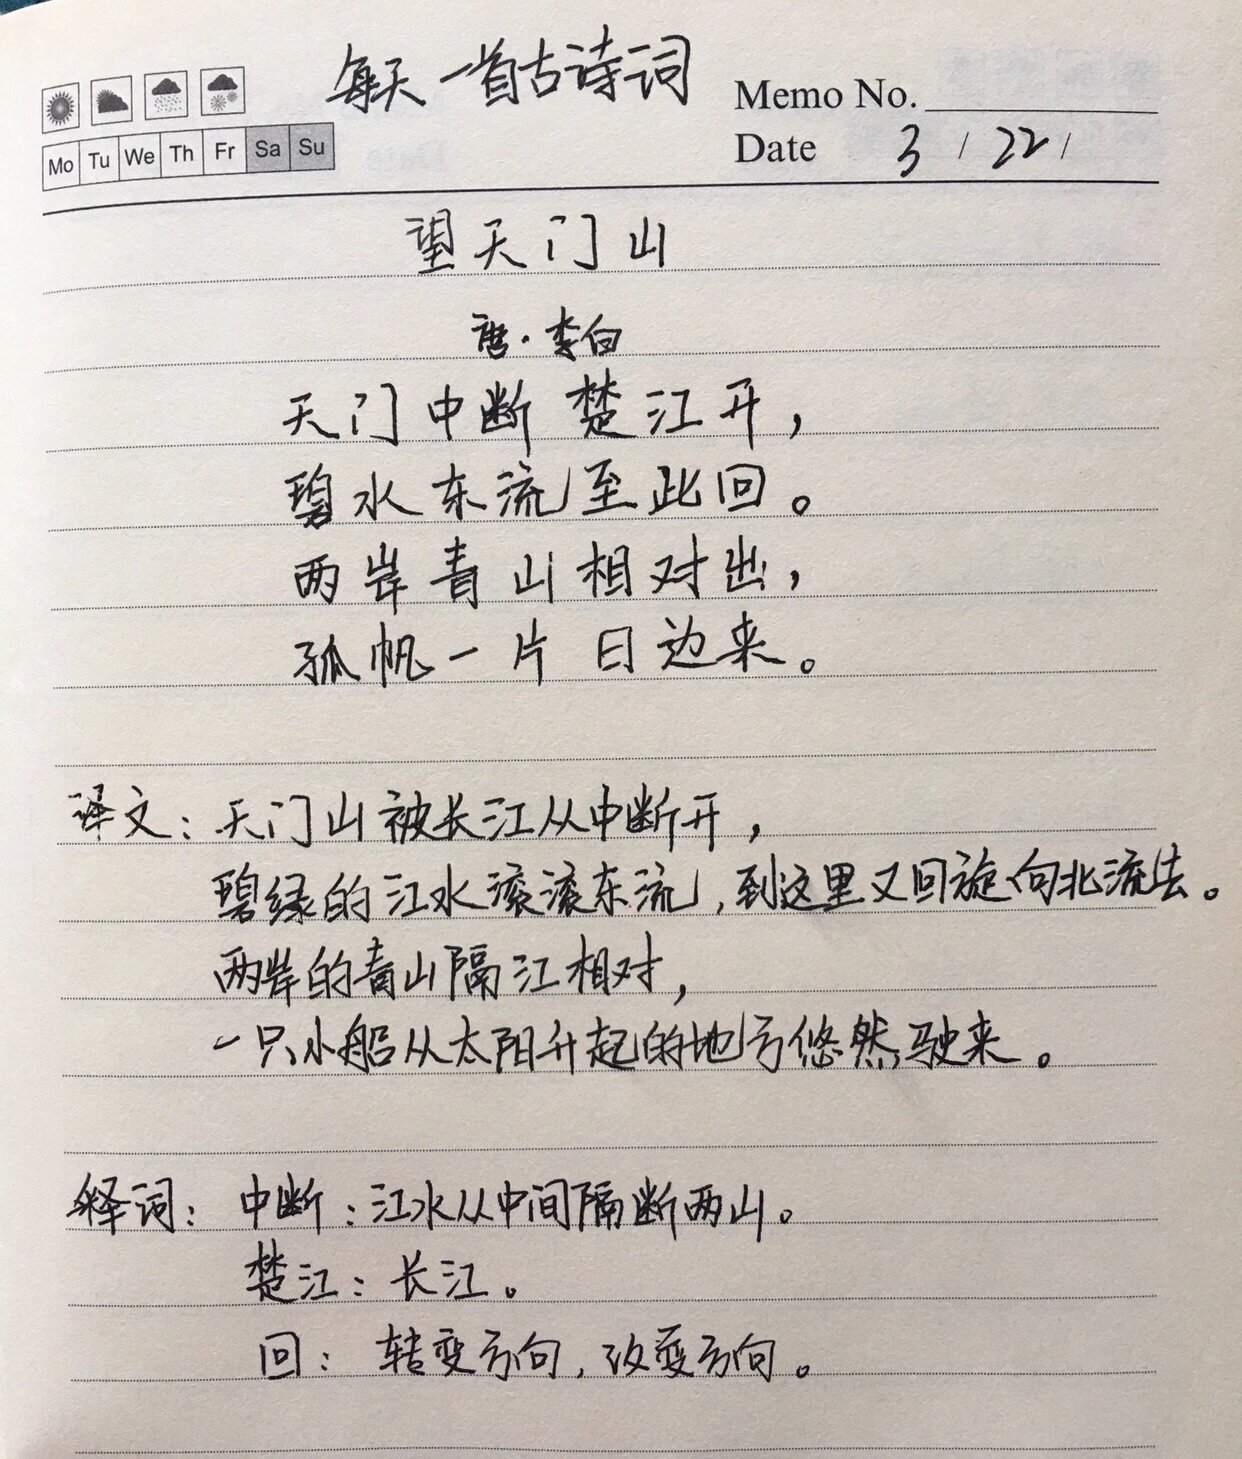 每天一首古诗词
Memo No.
Mo Tu We Th Fr Sa Su
Date 3 / 22 /
望天门山
唐·李白
天门中断楚江开，
碧水东流至此回。
两岸青山相对出，
孤帆一片日边来。
译文：天门山被长江从中断开，
碧绿的江水滚滚东流，到这里又回旋向北流去。
两岸的青山隔江相对，
一只小船从太阳升起的地方悠然驶来。
释词：中断：江水从中间隔断两山。
楚江：长江。
回：转变方向，改变方向。